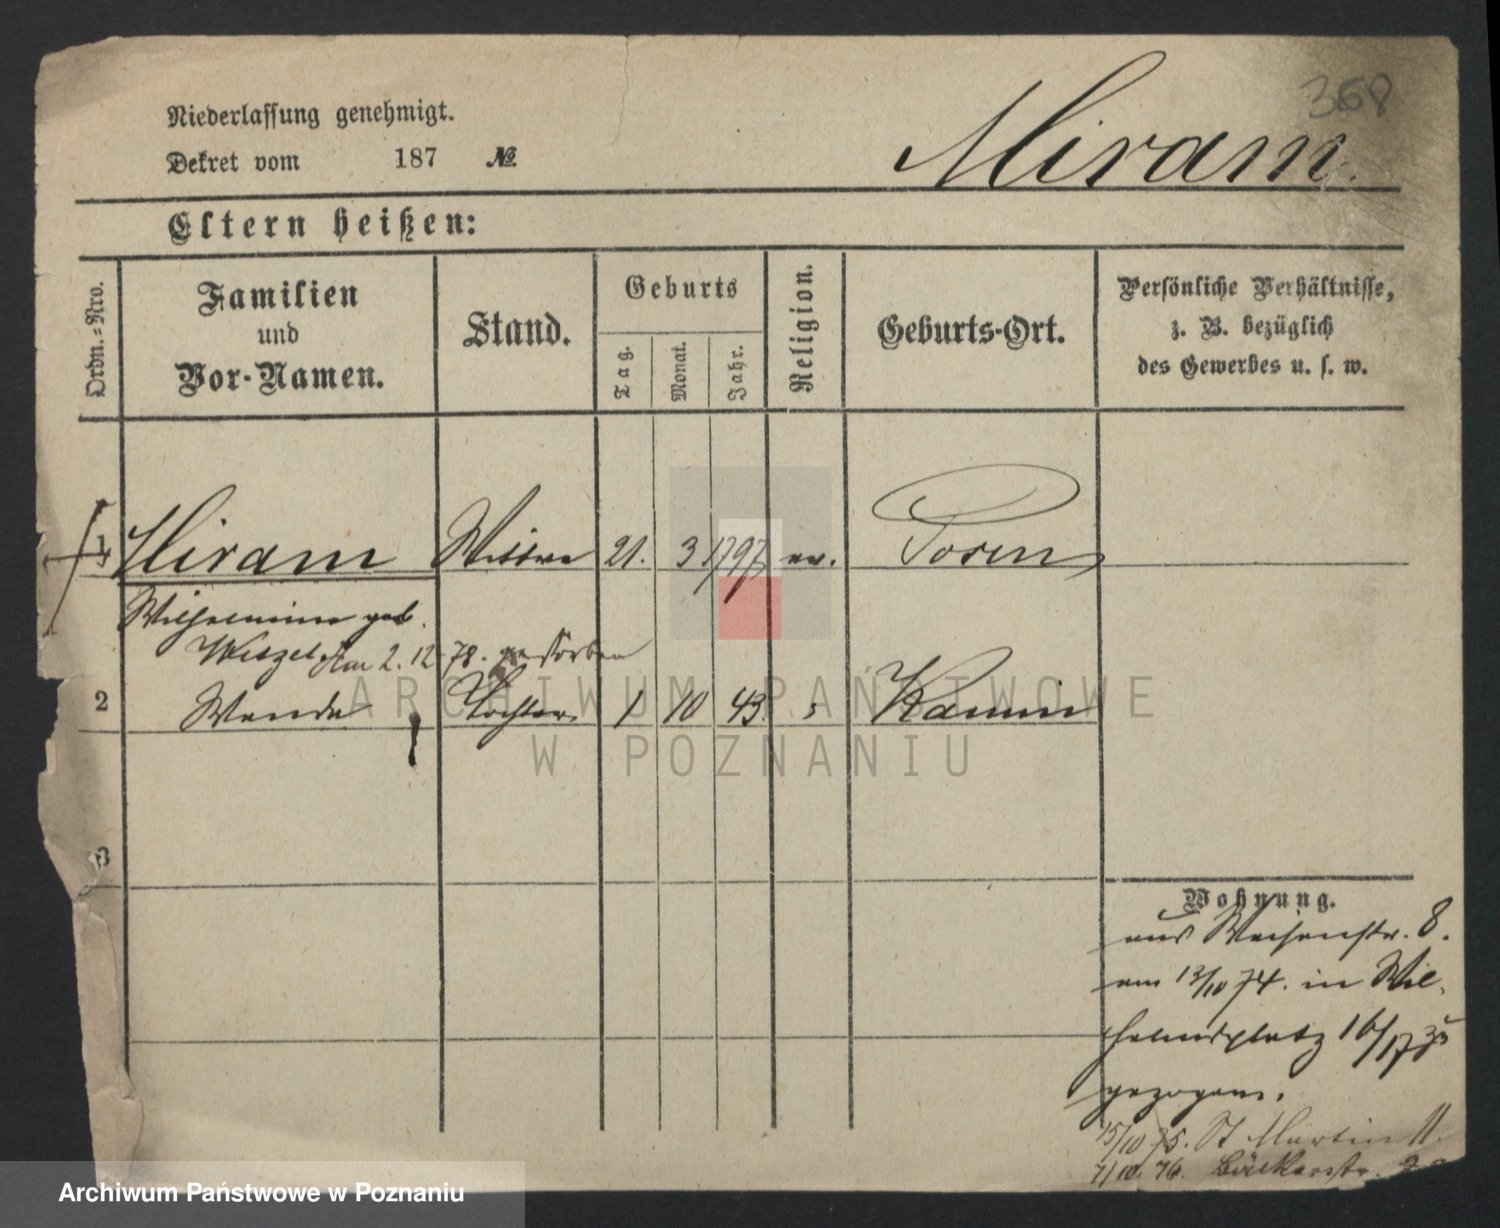 368
Niederlassung genehmigt.
Dekret vom 187 №
Miram.
Eltern heißen:
Ordn.-Nro.
Familien
und
Vor-Namen.
Stand.
Geburts
Tag.
Monat.
Jahr.
Religion.
Geburts-Ort.
Persönliche Verhältnisse,
z. B. bezüglich
des Gewerbes u. s. w.
1 Miram Wittwe 21. 3 1797 ev. Posen
Wilhelmine geb.
Wetzel. Am 2. 12 78. gestorben
2 Wanda Tochter 1 10 43. Kamin
3
Wohnung.
aus Waisenstr. 8.
am 13/10 74. in Wil-
helmsplatz 16/17 zu
gezogen.
15/10 75. St Martin 11.
7/10. 76. Bäckerstr.
ARCHIWUM PAŃSTWOWE
W POZNANIU
Archiwum Państwowe w Poznaniu